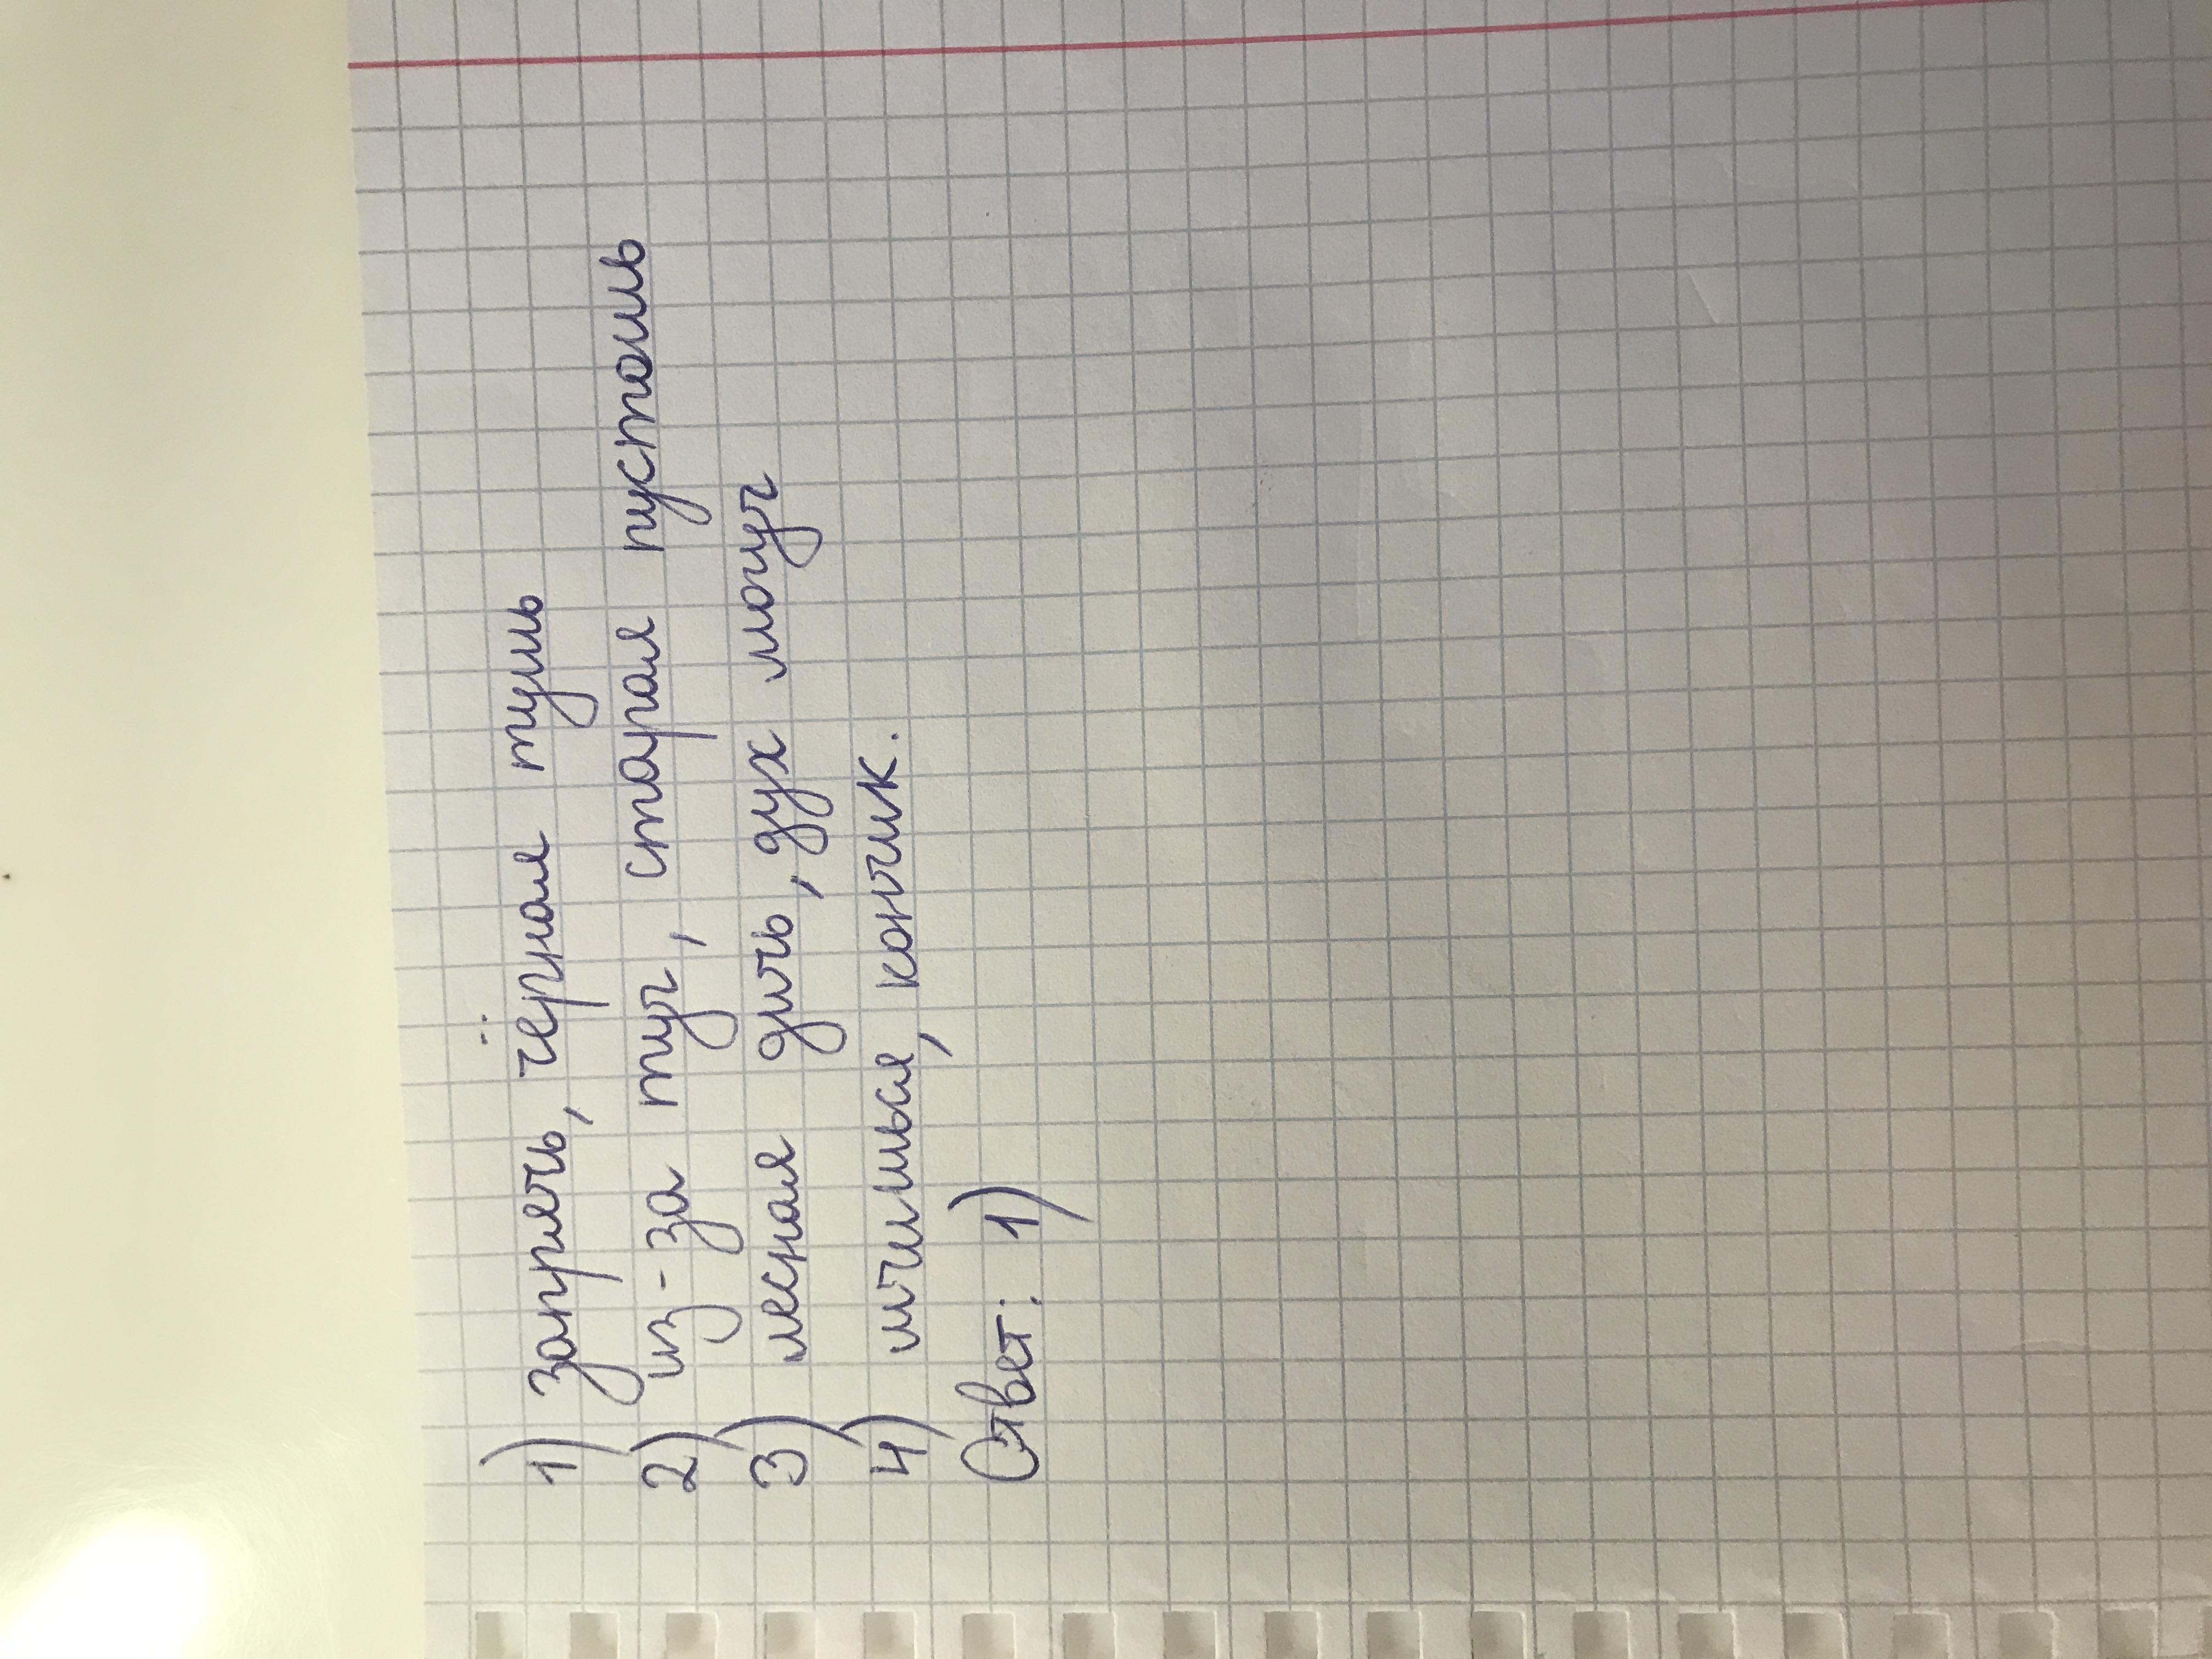 1) запрячь, чёрная тушь
2) из-за туч, старая пустошь
3) лесная дичь, дух могуч
4) мчишься, кончик.
Ответ: 1)